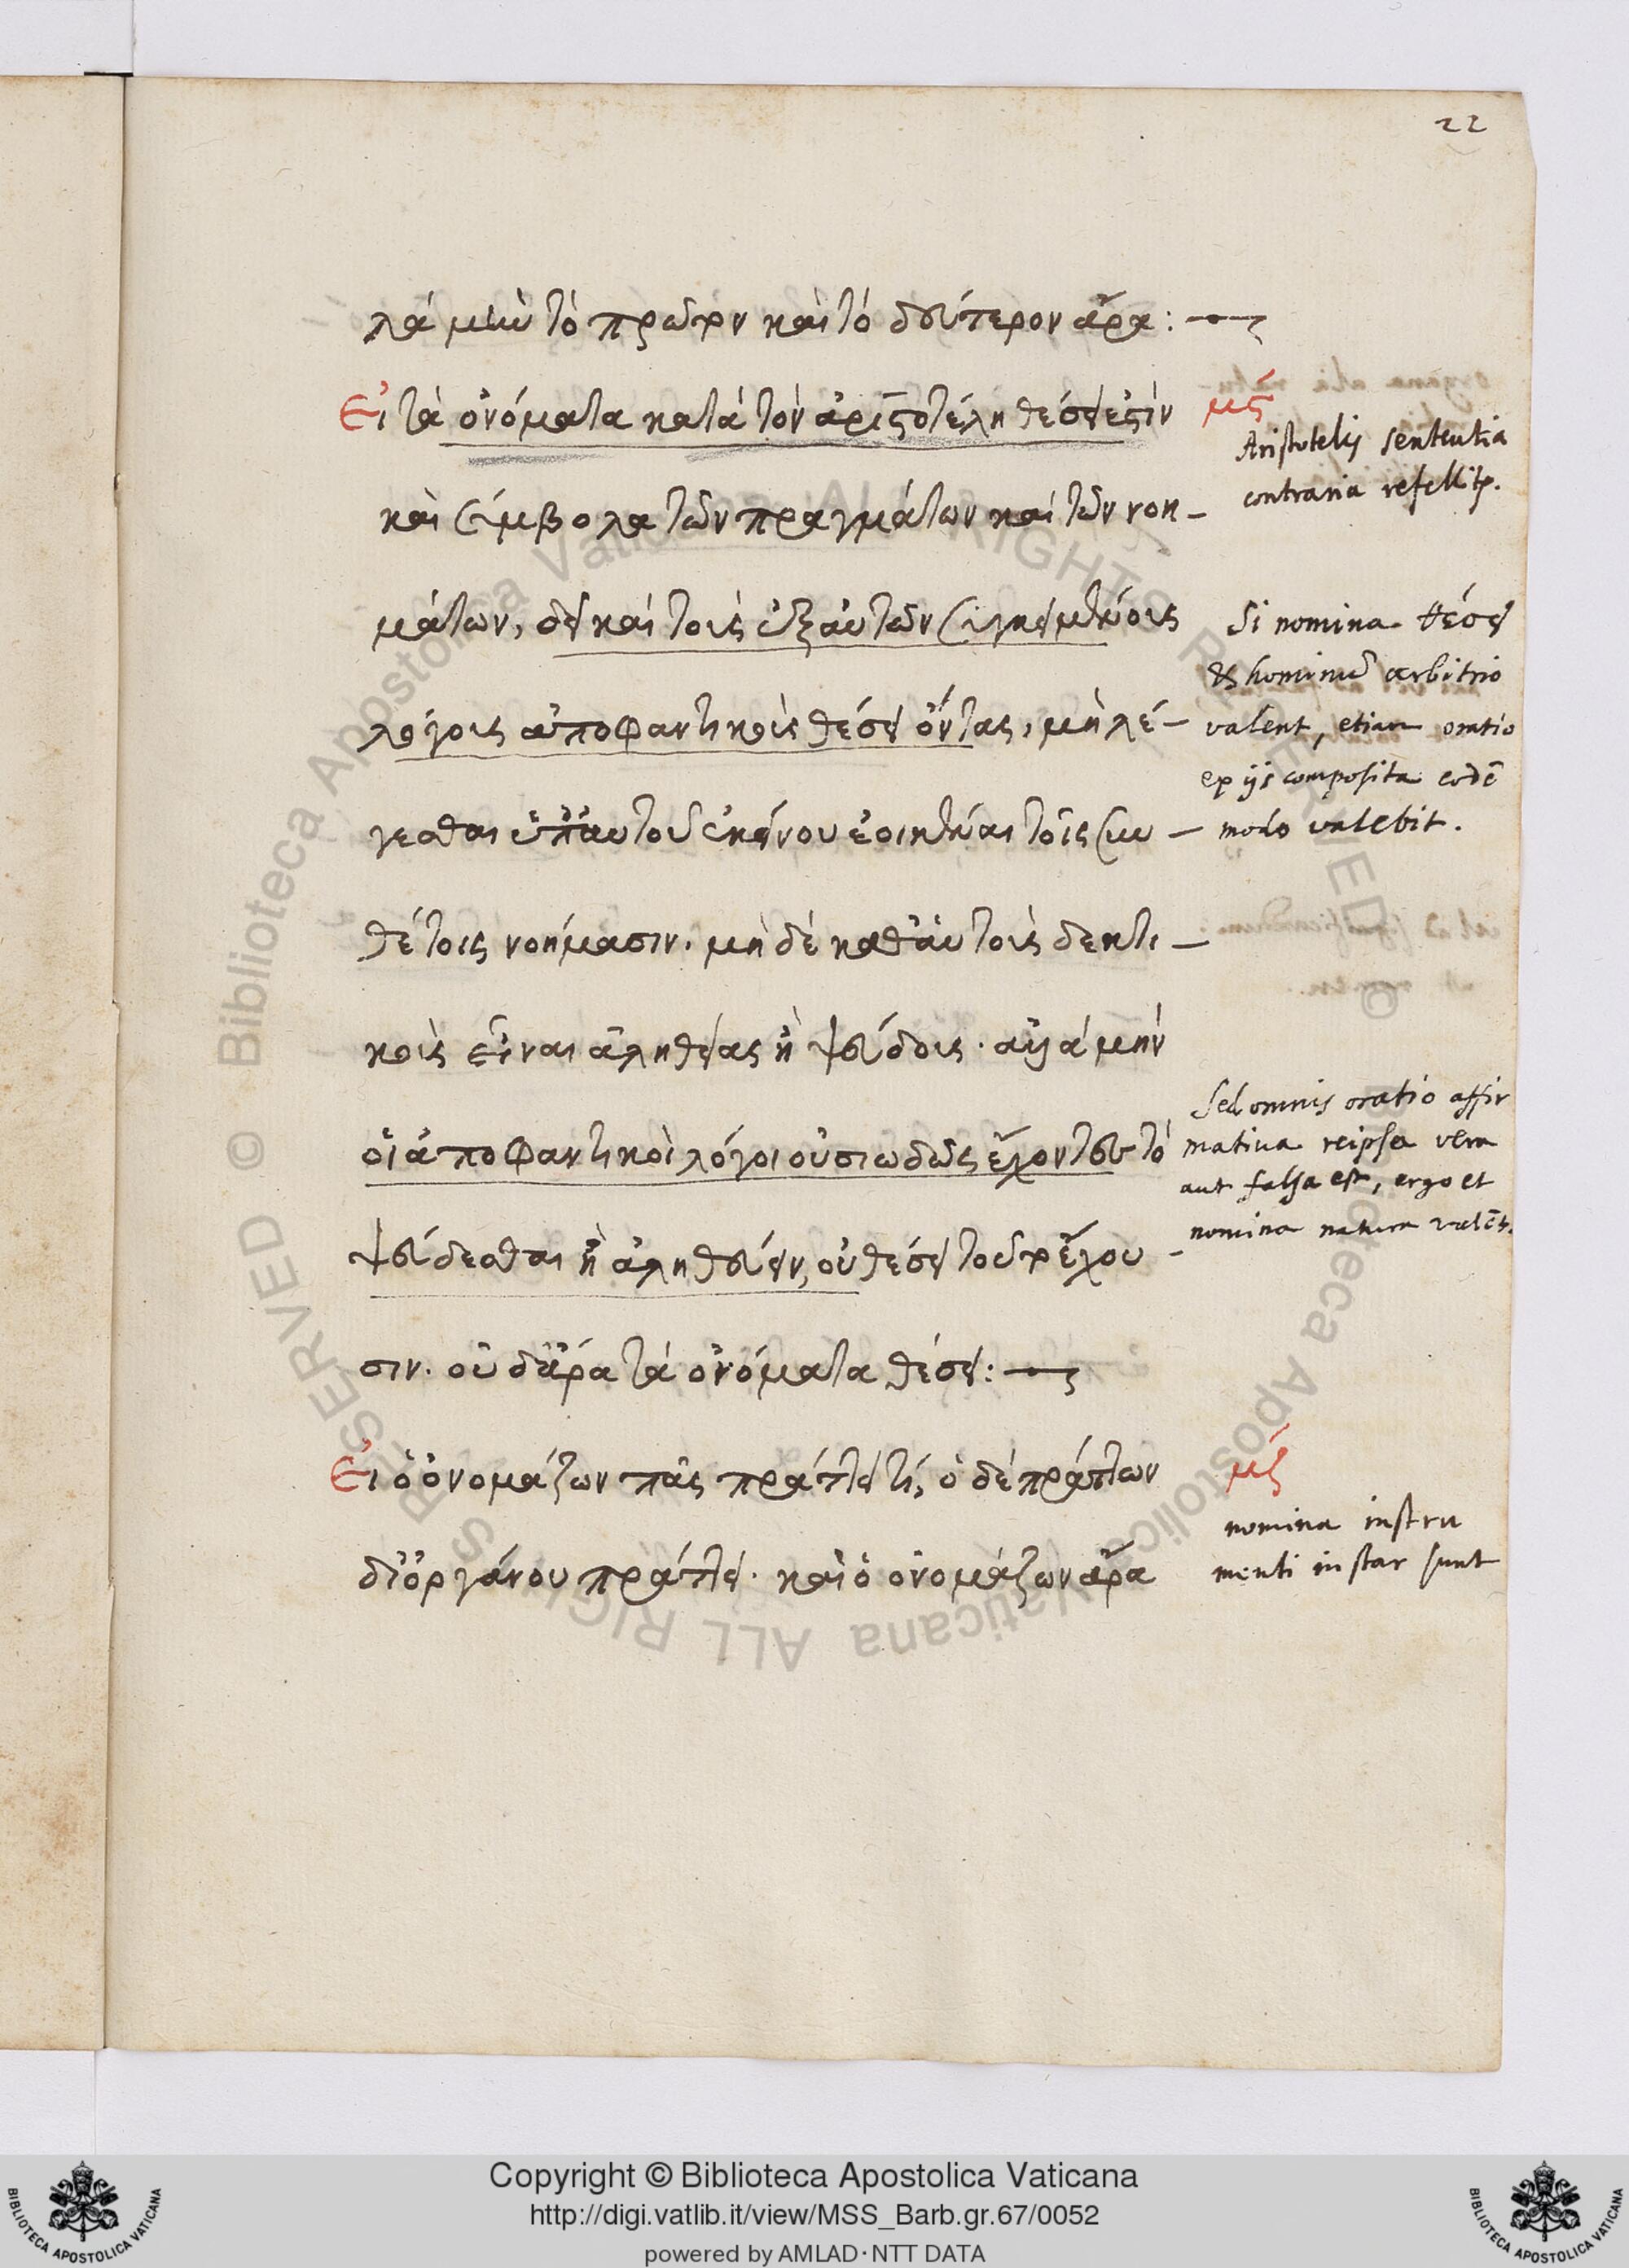 22
λὰ μὴν τὸ πρῶτον καὶ τὸ δεύτερον ἄρα :
Εἰ τὰ ὀνόματα κατὰ τὸν ἀριστοτέλη θέσει ἐστὶν
μς
Aristotelis sententia
contraria refellitr.
καὶ σύμβολα τῶν πραγμάτων καὶ τῶν νοη-
μάτων, δεῖ καὶ τοὺς ἐξ αὐτῶν συγκειμένους
λόγους ἀποφαντικοὺς θέσει ὄντας, μὴ λέ-
γεσθαι ὑπ' αὐτοῦ ἐκείνου ἐοικέναι τοῖς συν-
θέτοις νοήμασιν. μὴ δὲ καθ' αὑτοὺς δεκτι-
κοὺς εἶναι ἀληθείας ἢ ψεύδους. ἀλλὰ μὴν
οἱ ἀποφαντικοὶ λόγοι οὐσιωδῶς ἔχοντες τὸ
ψεύδεσθαι ἢ ἀληθεύειν, οὐ θέσει τοῦτο ἔχου-
σιν. οὐδ' ἄρα τὰ ὀνόματα θέσει :
Si nomina θέσει
& hominū arbitrio
valent, etiam oratio
ex ijs composita eodē
modo valebit.
Sed omnis oratio affir
matiua reipsa vera
aut falsa est, ergo et
nomina natura valēt.
Εἰ ὁ ὀνομάζων πᾶς πράττει τί, ὁ δὲ πράττων
δι' ὀργάνου πράττει. καὶ ὁ ὀνομάζων ἄρα
μζ
nomina instru
menti instar sunt
© Biblioteca Apostolica Vaticana ALL RIGHTS RESERVED
© Biblioteca Apostolica Vaticana ALL RIGHTS RESERVED
Copyright © Biblioteca Apostolica Vaticana
http://digi.vatlib.it/view/MSS_Barb.gr.67/0052
powered by AMLAD·NTT DATA
BIBLIOTECA APOSTOLICA VATICANA
BIBLIOTECA APOSTOLICA VATICANA